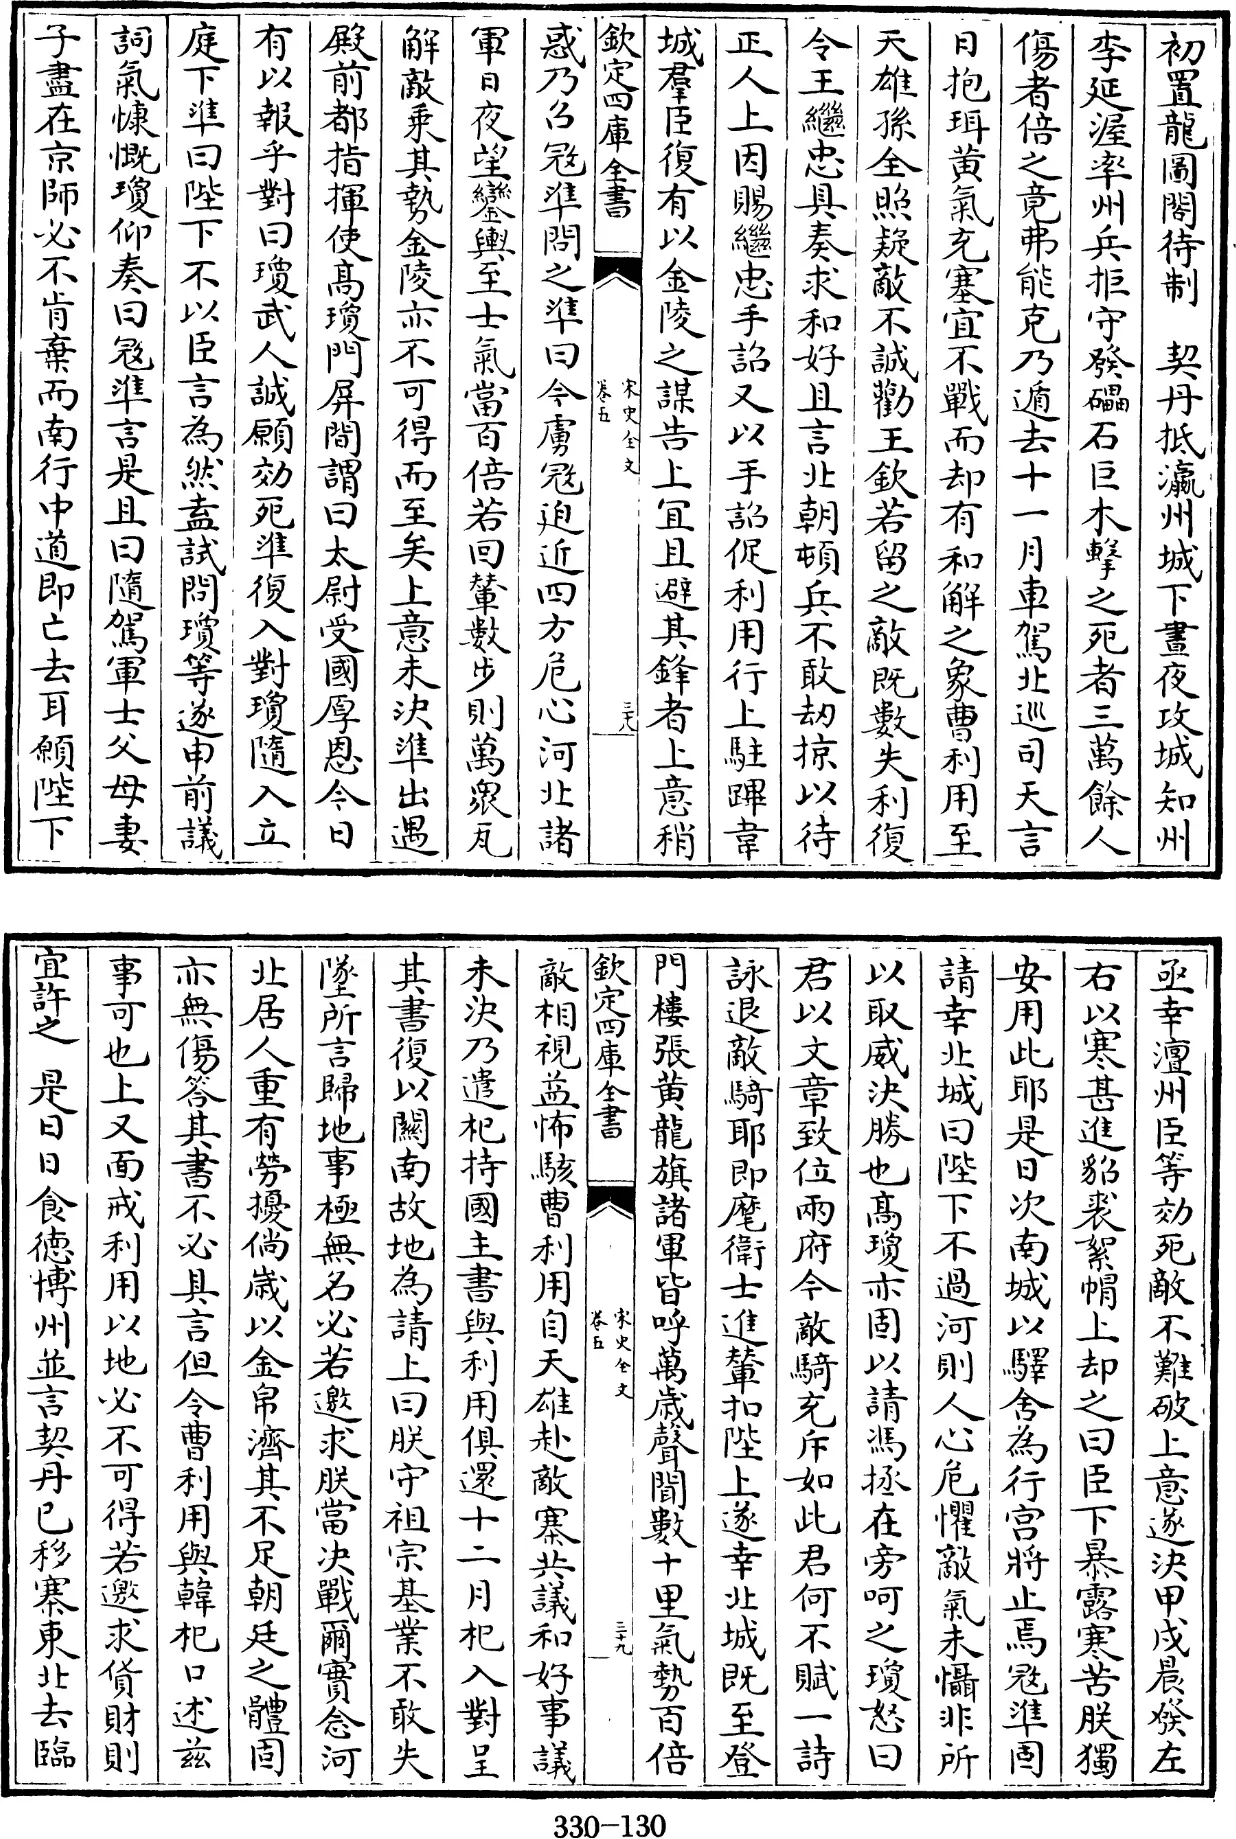 初置龍圖閣待制　契丹抵瀛州城下晝夜攻城知州
李延渥率州兵拒守發礌石巨木擊之死者三萬餘人
傷者倍之竟弗能克乃遁去十一月車駕北巡司天言
日抱珥黄氣充塞宜不戰而却有和解之象曹利用至
天雄孫全照疑敵不誠勸王欽若留之敵既數失利復
令王繼忠具奏求和好且言北朝頓兵不敢刧掠以待
正人上因賜繼忠手詔又以手詔促利用行上駐蹕韋
城羣臣復有以金陵之謀告上宜且避其鋒者上意稍
欽定四庫全書
宋史全文
卷五
三十八
惑乃召冦準問之準曰今虜冦迫近四方危心河北諸
軍日夜望鑾輿至士氣當百倍若回輦數步則萬衆瓦
解敵乗其勢金陵亦不可得而至矣上意未決準出遇
殿前都指揮使高瓊門屏間謂曰太尉受國厚恩今日
有以報乎對曰瓊武人誠願効死準復入對瓊隨入立
庭下準曰陛下不以臣言為然盍試問瓊等遂申前議
詞氣慷慨瓊仰奏曰冦準言是且曰隨駕軍士父母妻
子盡在京師必不肯棄而南行中道即亡去耳願陛下
亟幸澶州臣等効死敵不難破上意遂決甲戌晨發左
右以寒甚進貂裘絮帽上却之曰臣下暴露寒苦朕獨
安用此耶是日次南城以驛舍為行宫將止焉冦準固
請幸北城曰陛下不過河則人心危懼敵氣未懾非所
以取威決勝也高瓊亦固以請馮拯在旁呵之瓊怒曰
君以文章致位兩府今敵騎充斥如此君何不賦一詩
詠退敵騎耶即麾衛士進輦扣陛上遂幸北城既至登
門樓張黄龍旗諸軍皆呼萬歲聲聞數十里氣勢百倍
欽定四庫全書
宋史全文
卷五
三十九
敵相視益怖駭曹利用自天雄赴敵寨共議和好事議
未決乃遣杞持國主書與利用俱還十二月杞入對呈
其書復以關南故地為請上曰朕守祖宗基業不敢失
墜所言歸地事極無名必若邀求朕當決戰爾實念河
北居人重有勞擾倘歲以金帛濟其不足朝廷之體固
亦無傷答其書不必具言但令曹利用與韓杞口述兹
事可也上又面戒利用以地必不可得若邀求貨財則
宜許之　是日日食德博州並言契丹已移寨東北去臨
330-130